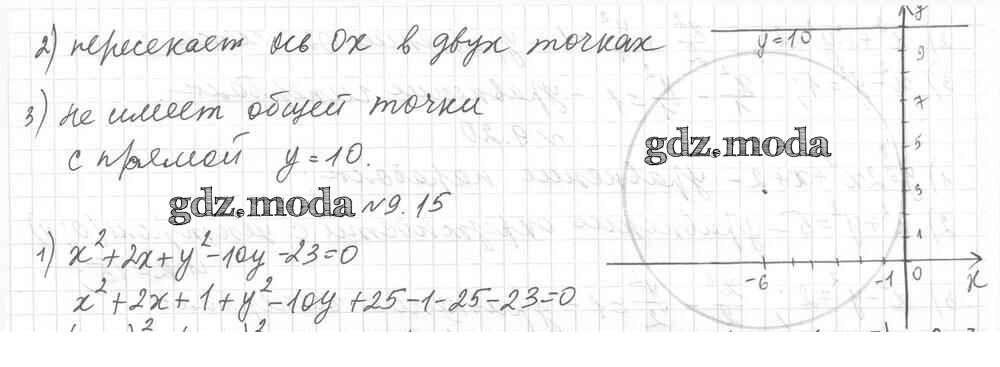 2) пересекает ось Ox в двух точках
3) не имеет общей точки
с прямой y = 10.
gdz.moda №9.15
1) x² + 2x + y² - 10y - 23 = 0
x² + 2x + 1 + y² - 10y + 25 - 1 - 25 - 23 = 0
y
y = 10
9
7
5
gdz.moda
3
1
-6
-1
0
x